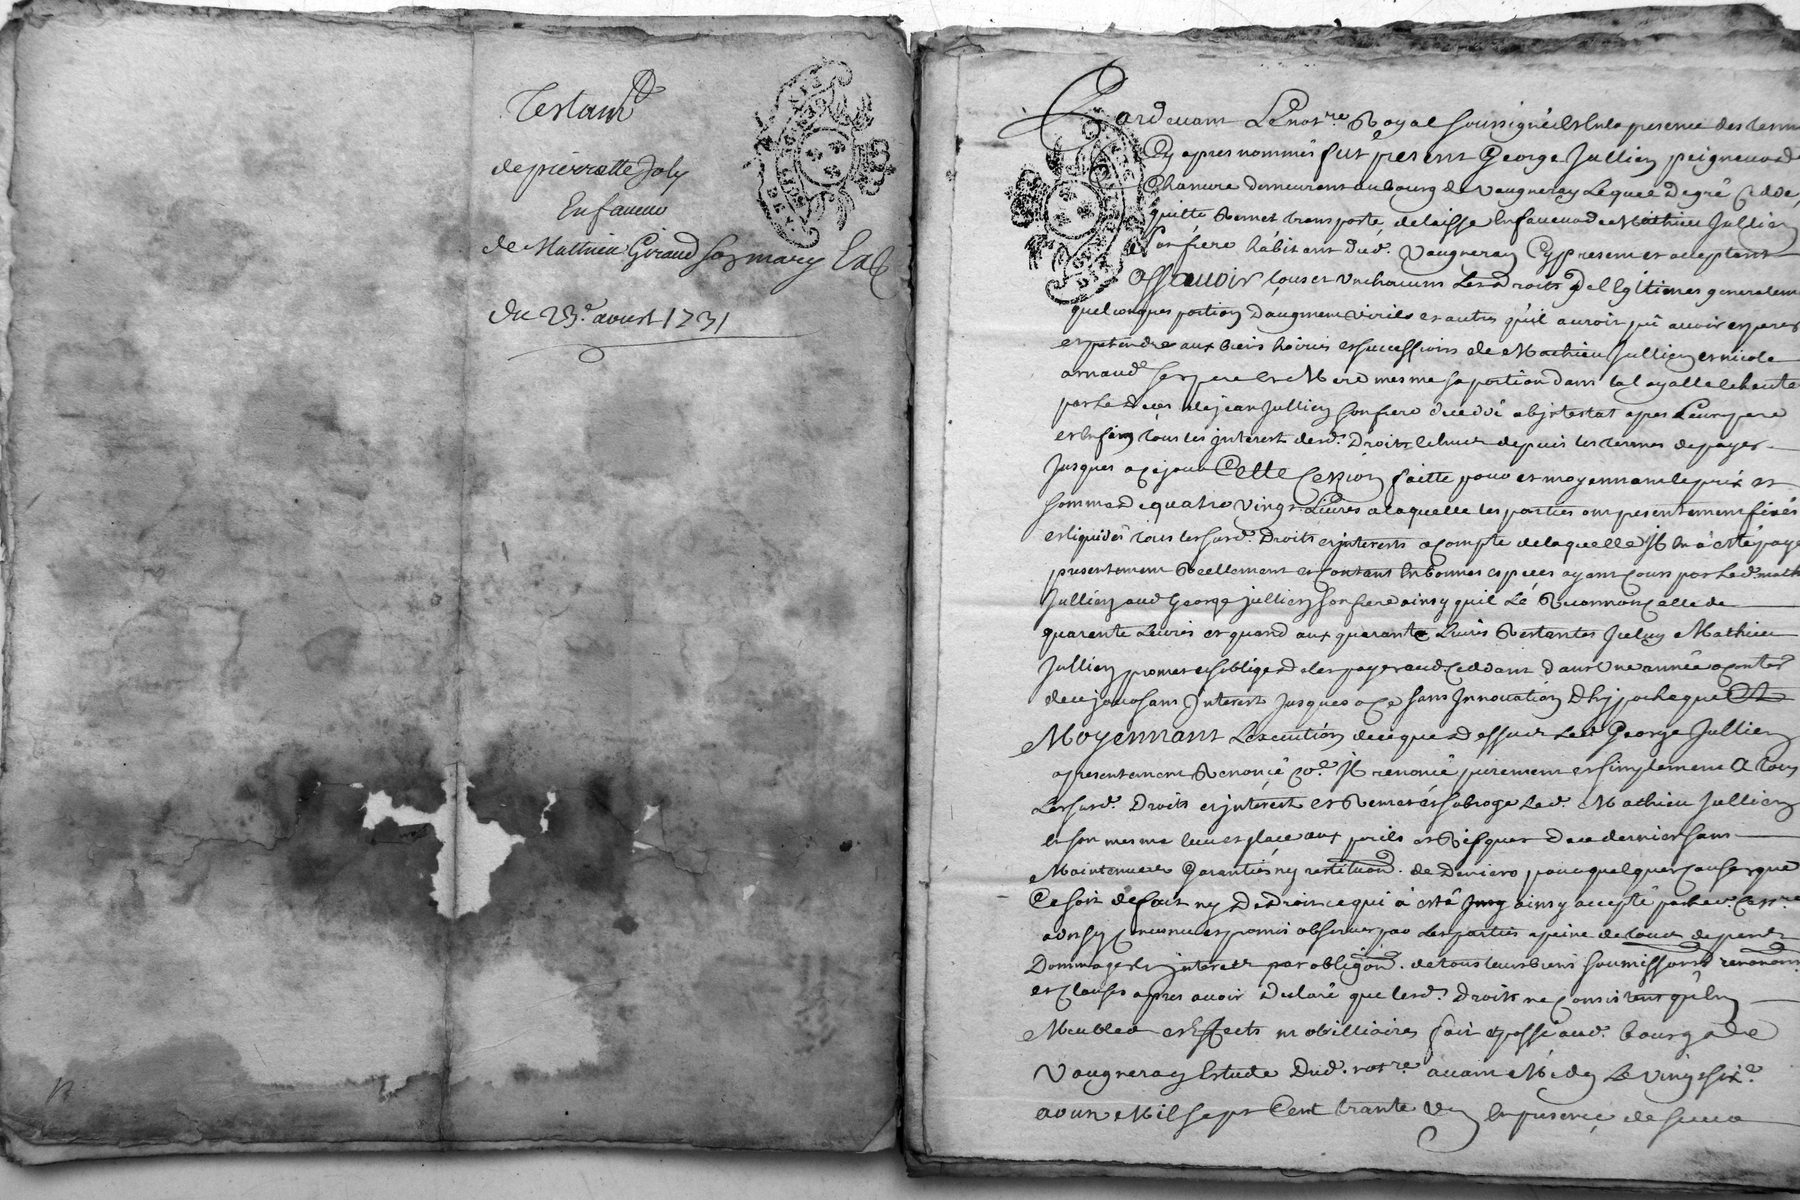 Testamt
de pierrette Joly
En faueur
de Mathieu Giraud son mary
du 23e aoust 1731
Pardeuant Le nostre Royal soussigné et En la presence des tesm
Cy apres nommés fut present George Jullien peigneur de
Chanure demeurant au bourg de Vaugneray Lequel de gré Cedde,
quitte Remet transporte, delaisse En faueur de Mathieu Jullien
son frere habitant dud. Vaugneray Cy present et acceptant
Assauoir tous et Vnchacuns Les Droits de Legitimes generalem
quelconques portion D'augment virile et autres qu'il auroit pû auoir esperer
et pretendre aux biens hoiries et successions de Mathieu Jullien et nicole
arnaud ses pere et Mere mesme sa portion dans icelle
par Le Deces de jean Jullien son frere decedé abintestat apres Leur pere
et Enfin tous les jnterest desd. Droits depuis les termes de payer
Jusques a ce jour Cette Cession faitte pour et moyennant le prix et
somme de quatre vingt Liures a laquelle les parties ont presentement fixés
et liquidés tous les susd. Droits et jnterests a compte de laquelle Il En a esté payé
presentement Reellement et Contant En bonnes especes ayant Cours par Led. math
Jullien aud George jullien son frere ainsy qu'il Lé Reconnoit Celle de
quarente Liures et quand aux quarante Liures Restantes Jceluy Mathieu
Jullien promet et s'oblige de les payer aud. Ceddant dans Vne année a conter
de ce jour sans jnterest Jusques a ce sans Innovation D'hypotheque Et
Moyennant L'execution de ce que Dessus Led George Jullien
a presentement Renoncé Coe. Il renonce purement et simplement A tous
Les susd. Droits et jnterest et Remet et subroge Led. Mathieu Jullien
En son mesme lieu et place aux perils et Risques De ce dernier sans
Maintenue Garantie ny restituon. de Deniers pour quelque Cause que
Ce soit de fait ny De Droit ce qui à esté ainsy accepté par Led. Cessre
ainsy Conuenu et promis obseruer par Les parties a peine de tous depens
Dommages et jnterest par obligaon. de tous leurs biens soumissions renonons
et Clauses apres auoir Declaré que lesd. Droits ne Consistent qu'En
Meubles et Effects mobilliaires fait et passé aud. bourg de
Vaugneray Estude Dud. notre auant Midy Le vingt six e
aoust Mil sept Cent trante Vn En presence de sieur